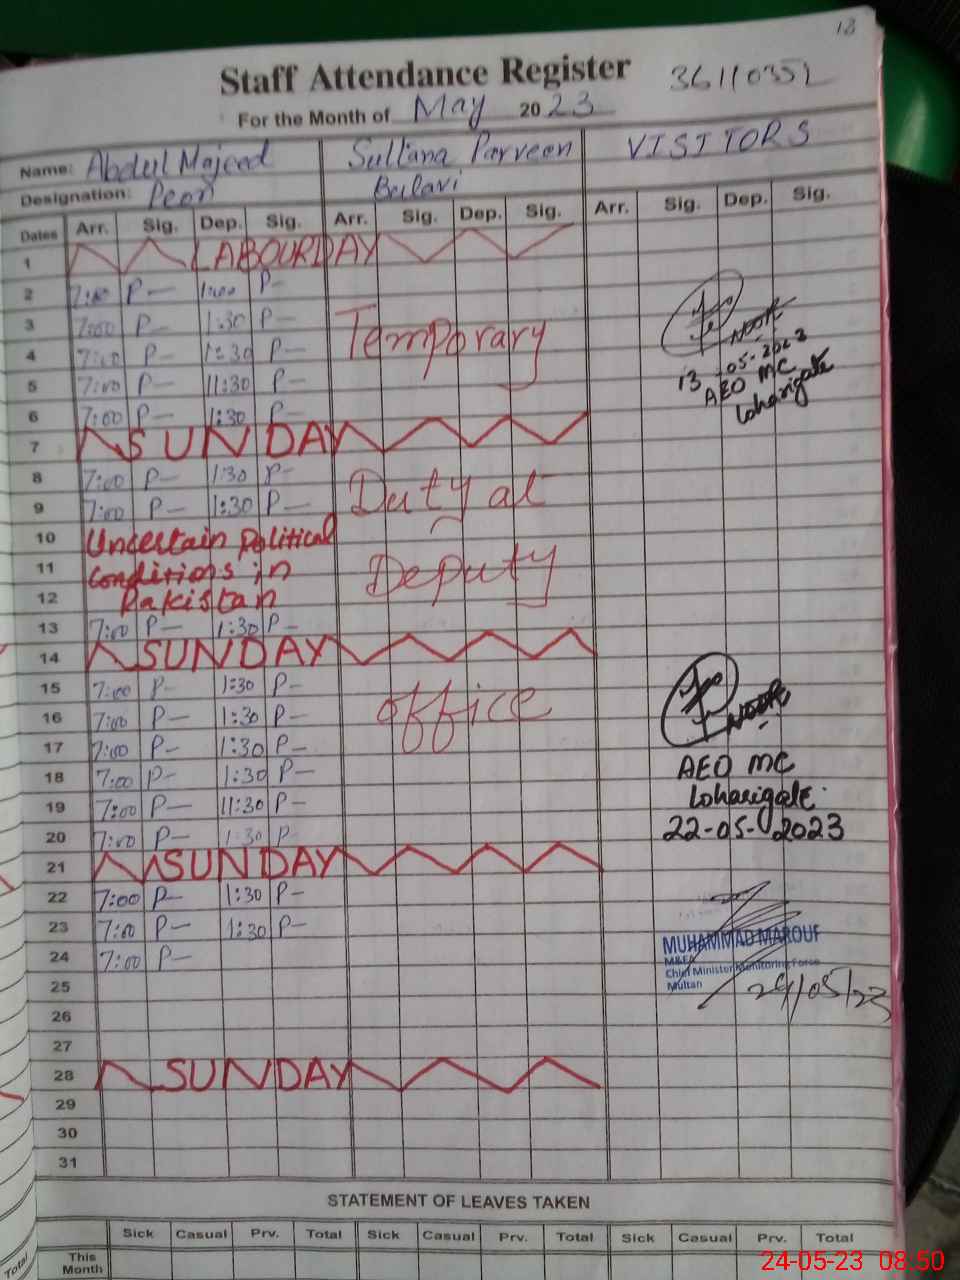 18
Staff Attendance Register 36110352
For the Month of May 2023
Name: Abdul Majeed Sultana Parveen VISITORS
Designation: Peon Bulavi
Dates Arr. Sig. Dep. Sig. Arr. Sig. Dep. Sig. Arr. Sig. Dep. Sig.
1 LABOUR DAY
2 7:00 P- 1:00 P-
3 7:00 P- 1:30 P- Temporary
4 7:00 P- 1:30 P-
5 7:00 P- 11:30 P-
6 7:00 P- 1:30 P-
NOOR
13-05-2023
AEO MC
Loharigate
7 SUNDAY
8 7:00 P- 1:30 P-
9 7:00 P- 1:30 P- Duty at
10 Uncertain Political
11 Conditions in Deputy
12 Pakistan
13 7:00 P- 1:30 P-
14 SUNDAY
15 7:00 P- 1:30 P-
16 7:00 P- 1:30 P- office
17 7:00 P- 1:30 P-
18 7:00 P- 1:30 P-
19 7:00 P- 11:30 P-
20 7:00 P- 1:30 P-
NOOR
AEO MC
Loharigate
22-05-2023
21 SUNDAY
22 7:00 P- 1:30 P-
23 7:00 P- 1:30 P-
24 7:00 P-
MUHAMMAD MAROUF
M&EA
Chief Minister Monitoring Force
Multan
24/05/23
25
26
27
28 SUNDAY
29
30
31
STATEMENT OF LEAVES TAKEN
Sick Casual Prv. Total Sick Casual Prv. Total Sick Casual Prv. Total
This
Month
Total
24-05-23 08:50